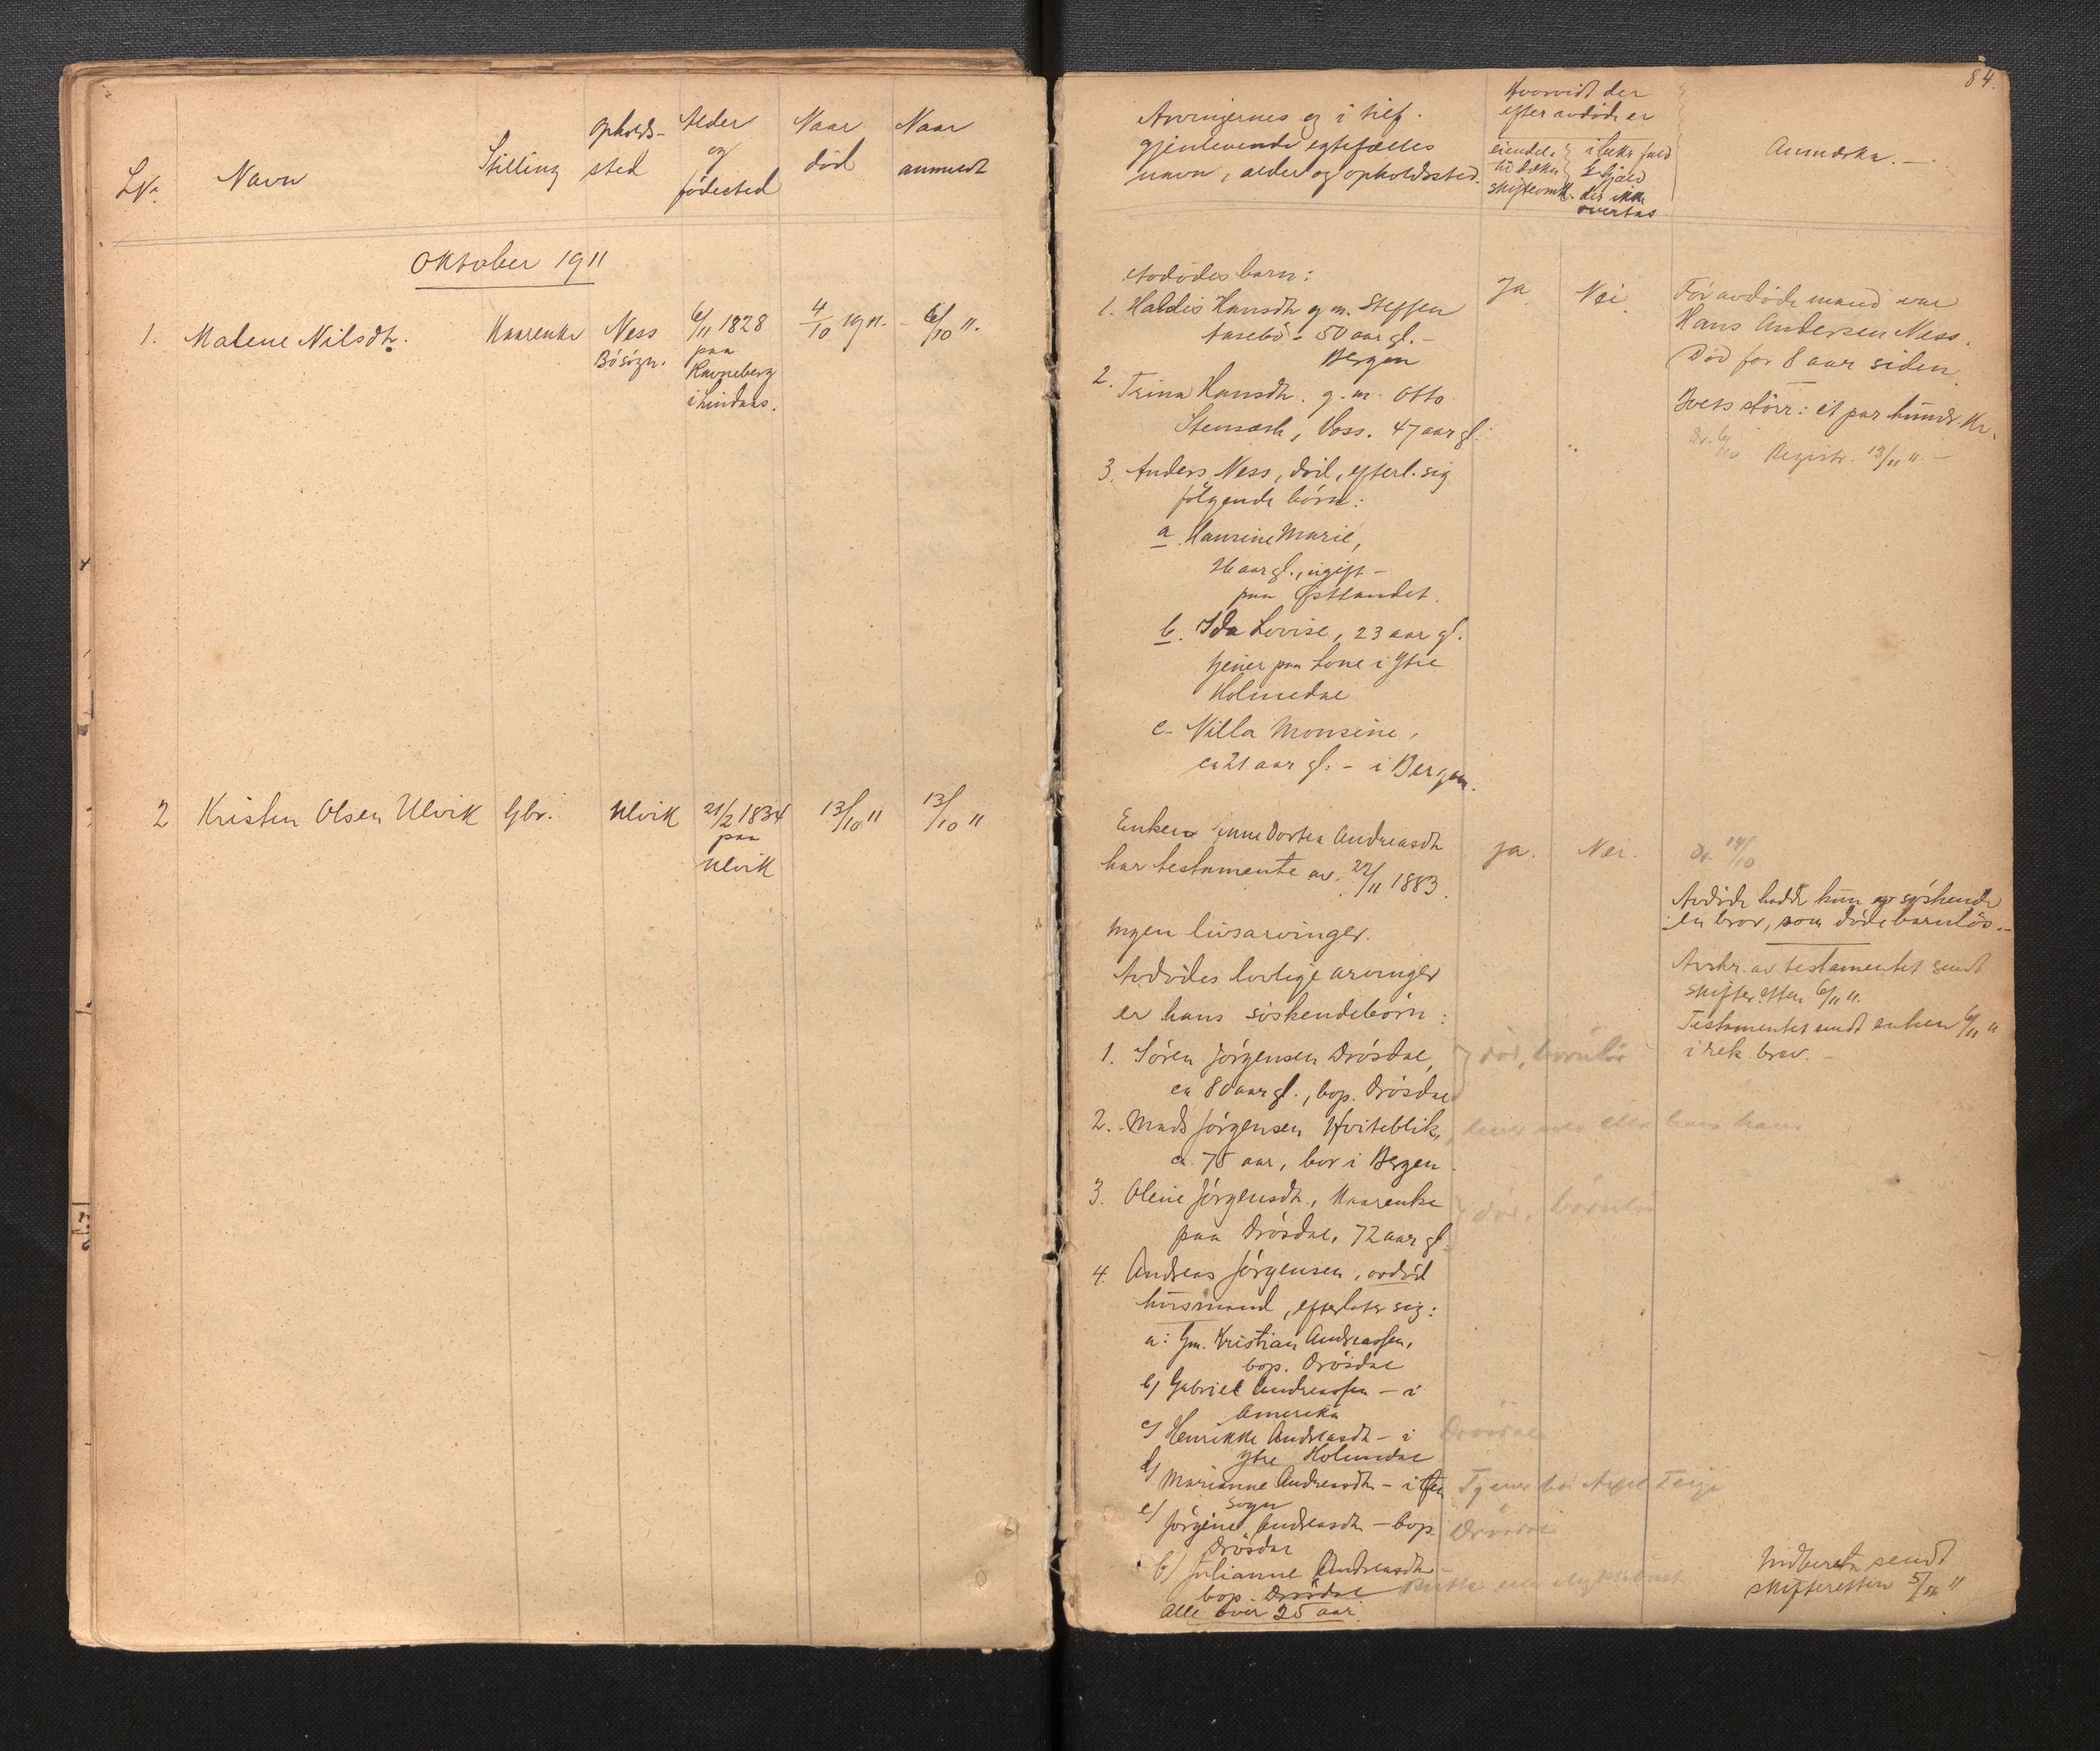 LNr.
Navn
Stilling
Opholds-
sted
Alder
og
födested
Naar
död
Naar
anmeldt
Oktober 1911
1. Malene Nilsdtr. Kaarenke Ness 6/11 1828 4/10 1911. 6/10 11.
Bösogn. paa
Ravneberg
i Lindaas.
2 Kristen Olsen Ulvik Gbr. Ulvik 21/2 1834 13/10 11 13/10 11
paa
Ulvik
84.
Arvingernes og i tilf.
gjenlevende egtefælles
navn, alder og opholdssted.
Hvorvidt der
efter avdöde er
eiendele
til dækn.
skifteomk.
i bekr. fald
gjæld
der ikke
overtas
Anmærkn. -
Avdödes barn:
1. Haldis Hansdtr. g. m. Steffen
Aasebö - 50 aar gl. -
Bergen
Ja Nei
2. Trina Hansdtr. g. m. Otto
Stensæth, Voss. 47 aar gl.
3. Anders Ness, död, efterl. sig
fölgende börn:
a. Hansine Marie,
26 aar gl., ugift -
paa Østlandet.
b. Ida Lovise, 23 aar gl.
tjener paa Lone i Ytre
Holmedal
c. Villa Monsine,
ca 21 aar gl. - i Bergen.
Før avdöde mand var
Hans Andersen Ness.
Död for 8 aar siden.
Boets störr: et par hundr. Kr.
Dr. 6/10 Registr. 13/11 11 -
Enken Anne Dortea Andreasdtr
har testamente av 22/11 1883.
Ja. Nei.
Ingen livsarvinger.
Avdödes lovlige arvinger
er hans söskendebörn:
1. Sören Jörgensen Drösdal,
ca 80 aar gl., bop. Drösdal
död, barnlös
2. Mads Jörgensen Hviteblik,
ca. 75 aar, bor i Bergen.
3. Oline Jörgensdtr., Kaarenke
paa Drösdal, 72 aar gl.
död, barnlös
4. Andreas Jörgensen, avdöd
husmand, efterlater sig:
a: Gm. Kristian Andreassen,
bop. Drösdal
b) Gabriel Andreassen - i
Amerika
c) Henrikke Andreasdtr - i
Ytre Holmedal
Drösdal
d) Marianne Andreasdtr - i
Sogn
Tjener hos
e) Jörgine Andreasdtr - bop
Drösdal
Drösdal
f) Julianne Andreasdtr -
bop. Drösdal
Alle over 25 aar.
Dr. 14/10
Avdöde hadde kun av söskende
en bror, som döde barnlös. -
Avskr. av testamentet sendt
skifteretten 6/11 11.
Testamentet sendt enken 6/11 11
i rek. brev. -
Indberetn sendt
skifteretten 5/12 11